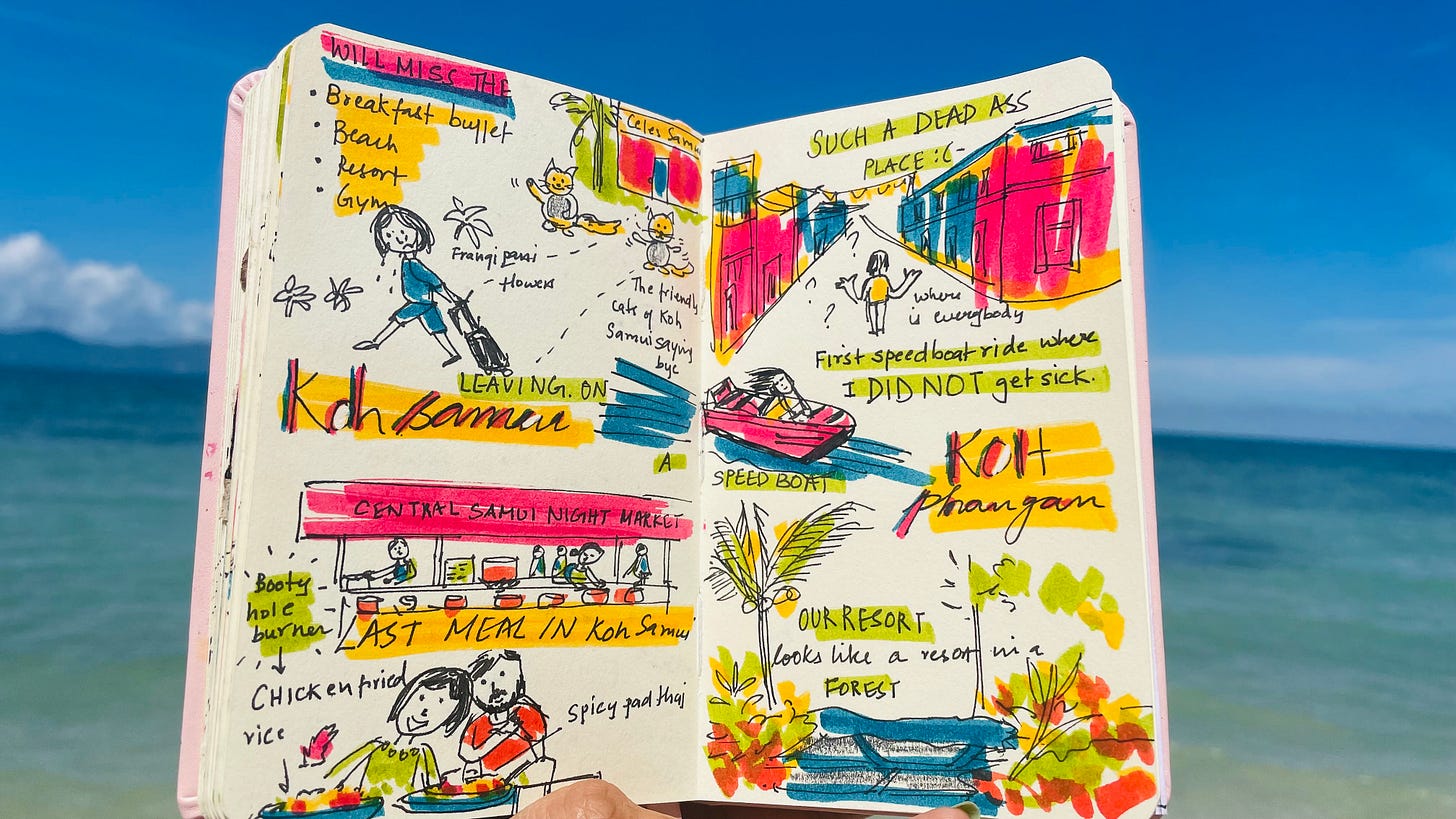 WILL MISS THE
• Breakfast buffet
• Beach
• Resort
• Gym
Celes Samui
Frangipani
flowers
The friendly
cats of Koh
Samui saying
bye
LEAVING ON
Koh Samui
A
CENTRAL SAMUI NIGHT MARKET
Booty
hole
burner
LAST MEAL IN Koh Samui
CHICKen fried
rice
spicy pad thai
SUCH A DEAD ASS
PLACE :(
?
where
is everybody
First speedboat ride where
I DID NOT get sick.
SPEED BOAT
KOH
phangan
OUR RESORT
looks like a resort in a
FOREST